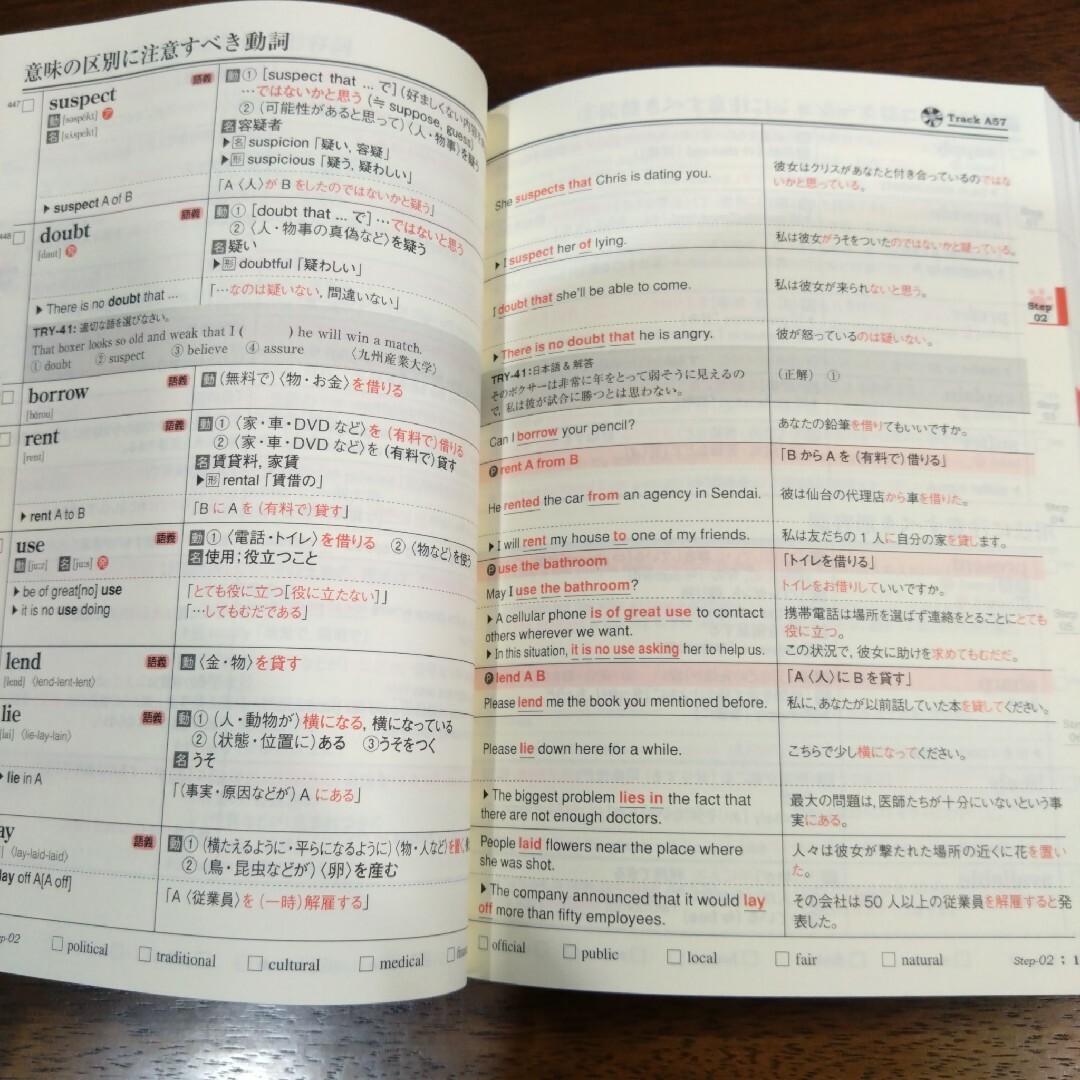 意味の区別に注意すべき動詞
447
suspect
語義
動 [səspékt] ア
名 [sʌ́spekt]
動① [suspect that … で] (好ましくない内容
…ではないかと思う (≒ suppose, guess)
② (可能性があると思って)〈人・物事〉を疑う
名 容疑者
▶名 suspicion 「疑い, 容疑」
▶形 suspicious 「疑う, 疑わしい」
▶ suspect A of B
「A〈人〉が B をしたのではないかと疑う」
448
doubt
語義
[daut] 発
動① [doubt that … で] …ではないと思う
②〈人・物事の真偽など〉を疑う
名 疑い
▶形 doubtful 「疑わしい」
▶ There is no doubt that …
「…なのは疑いない, 間違いない」
TRY-41: 適切な語を選びなさい。
That boxer looks so old and weak that I ( ) he will win a match.
① doubt ② suspect ③ believe ④ assure 〈九州産業大学〉
borrow
語義
[bɔ́rou]
動 (無料で)〈物・お金〉を借りる
rent
語義
[rent]
動①〈家・車・DVD など〉を (有料で) 借りる
②〈家・車・DVD など〉を (有料で) 貸す
名 賃貸料, 家賃
▶形 rental 「賃借の」
▶ rent A to B
「B に A を (有料で) 貸す」
use
語義
動 [juːz] 名 [juːs] 発
動①〈電話・トイレ〉を借りる ②〈物など〉を使う
名 使用; 役立つこと
▶ be of great[no] use
「とても役に立つ[役に立たない]」
▶ it is no use doing
「…してもむだである」
lend
語義
[lend] 〈lend-lent-lent〉
動〈金・物〉を貸す
lie
語義
[lai] 〈lie-lay-lain〉
動① (人・動物が) 横になる, 横になっている
② (状態・位置に) ある ③うそをつく
名 うそ
▶ lie in A
「(事実・原因などが) A にある」
ay
語義
〈lay-laid-laid〉
動① (横たえるように・平らになるように)〈物・人など〉を置く,
② (鳥・昆虫などが)〈卵〉を産む
lay off A[A off]
「A〈従業員〉を (一時) 解雇する」
p-02
□ political □ traditional □ cultural □ medical
Track A57
She suspects that Chris is dating you.
彼女はクリスがあなたと付き合っているのではな
いかと思っている。
▶ I suspect her of lying.
私は彼女がうそをついたのではないかと疑っている。
I doubt that she'll be able to come.
私は彼女が来られないと思う。
Step
02
▶ There is no doubt that he is angry.
彼が怒っているのは疑いない。
TRY-41: 日本語 & 解答
そのボクサーは非常に年をとって弱そうに見えるの
で, 私は彼が試合に勝つとは思わない。
(正解) ①
Can I borrow your pencil?
あなたの鉛筆を借りてもいいですか。
P rent A from B
「B から A を (有料で) 借りる」
He rented the car from an agency in Sendai.
彼は仙台の代理店から車を借りた。
▶ I will rent my house to one of my friends.
私は友だちの 1 人に自分の家を貸します。
P use the bathroom
「トイレを借りる」
May I use the bathroom?
トイレをお借りしていいですか。
▶ A cellular phone is of great use to contact
others wherever we want.
携帯電話は場所を選ばず連絡をとることにとても
役に立つ。
▶ In this situation, it is no use asking her to help us.
この状況で, 彼女に助けを求めてもむだだ。
P lend A B
「A〈人〉に B を貸す」
Please lend me the book you mentioned before.
私に, あなたが以前話していた本を貸してください。
Please lie down here for a while.
こちらで少し横になってください。
▶ The biggest problem lies in the fact that
there are not enough doctors.
最大の問題は, 医師たちが十分にいないという事
実にある。
People laid flowers near the place where
she was shot.
人々は彼女が撃たれた場所の近くに花を置い
た。
▶ The company announced that it would lay
off more than fifty employees.
その会社は 50 人以上の従業員を解雇すると発
表した。
□ official □ public □ local □ fair □ natural
Step-02 : 1